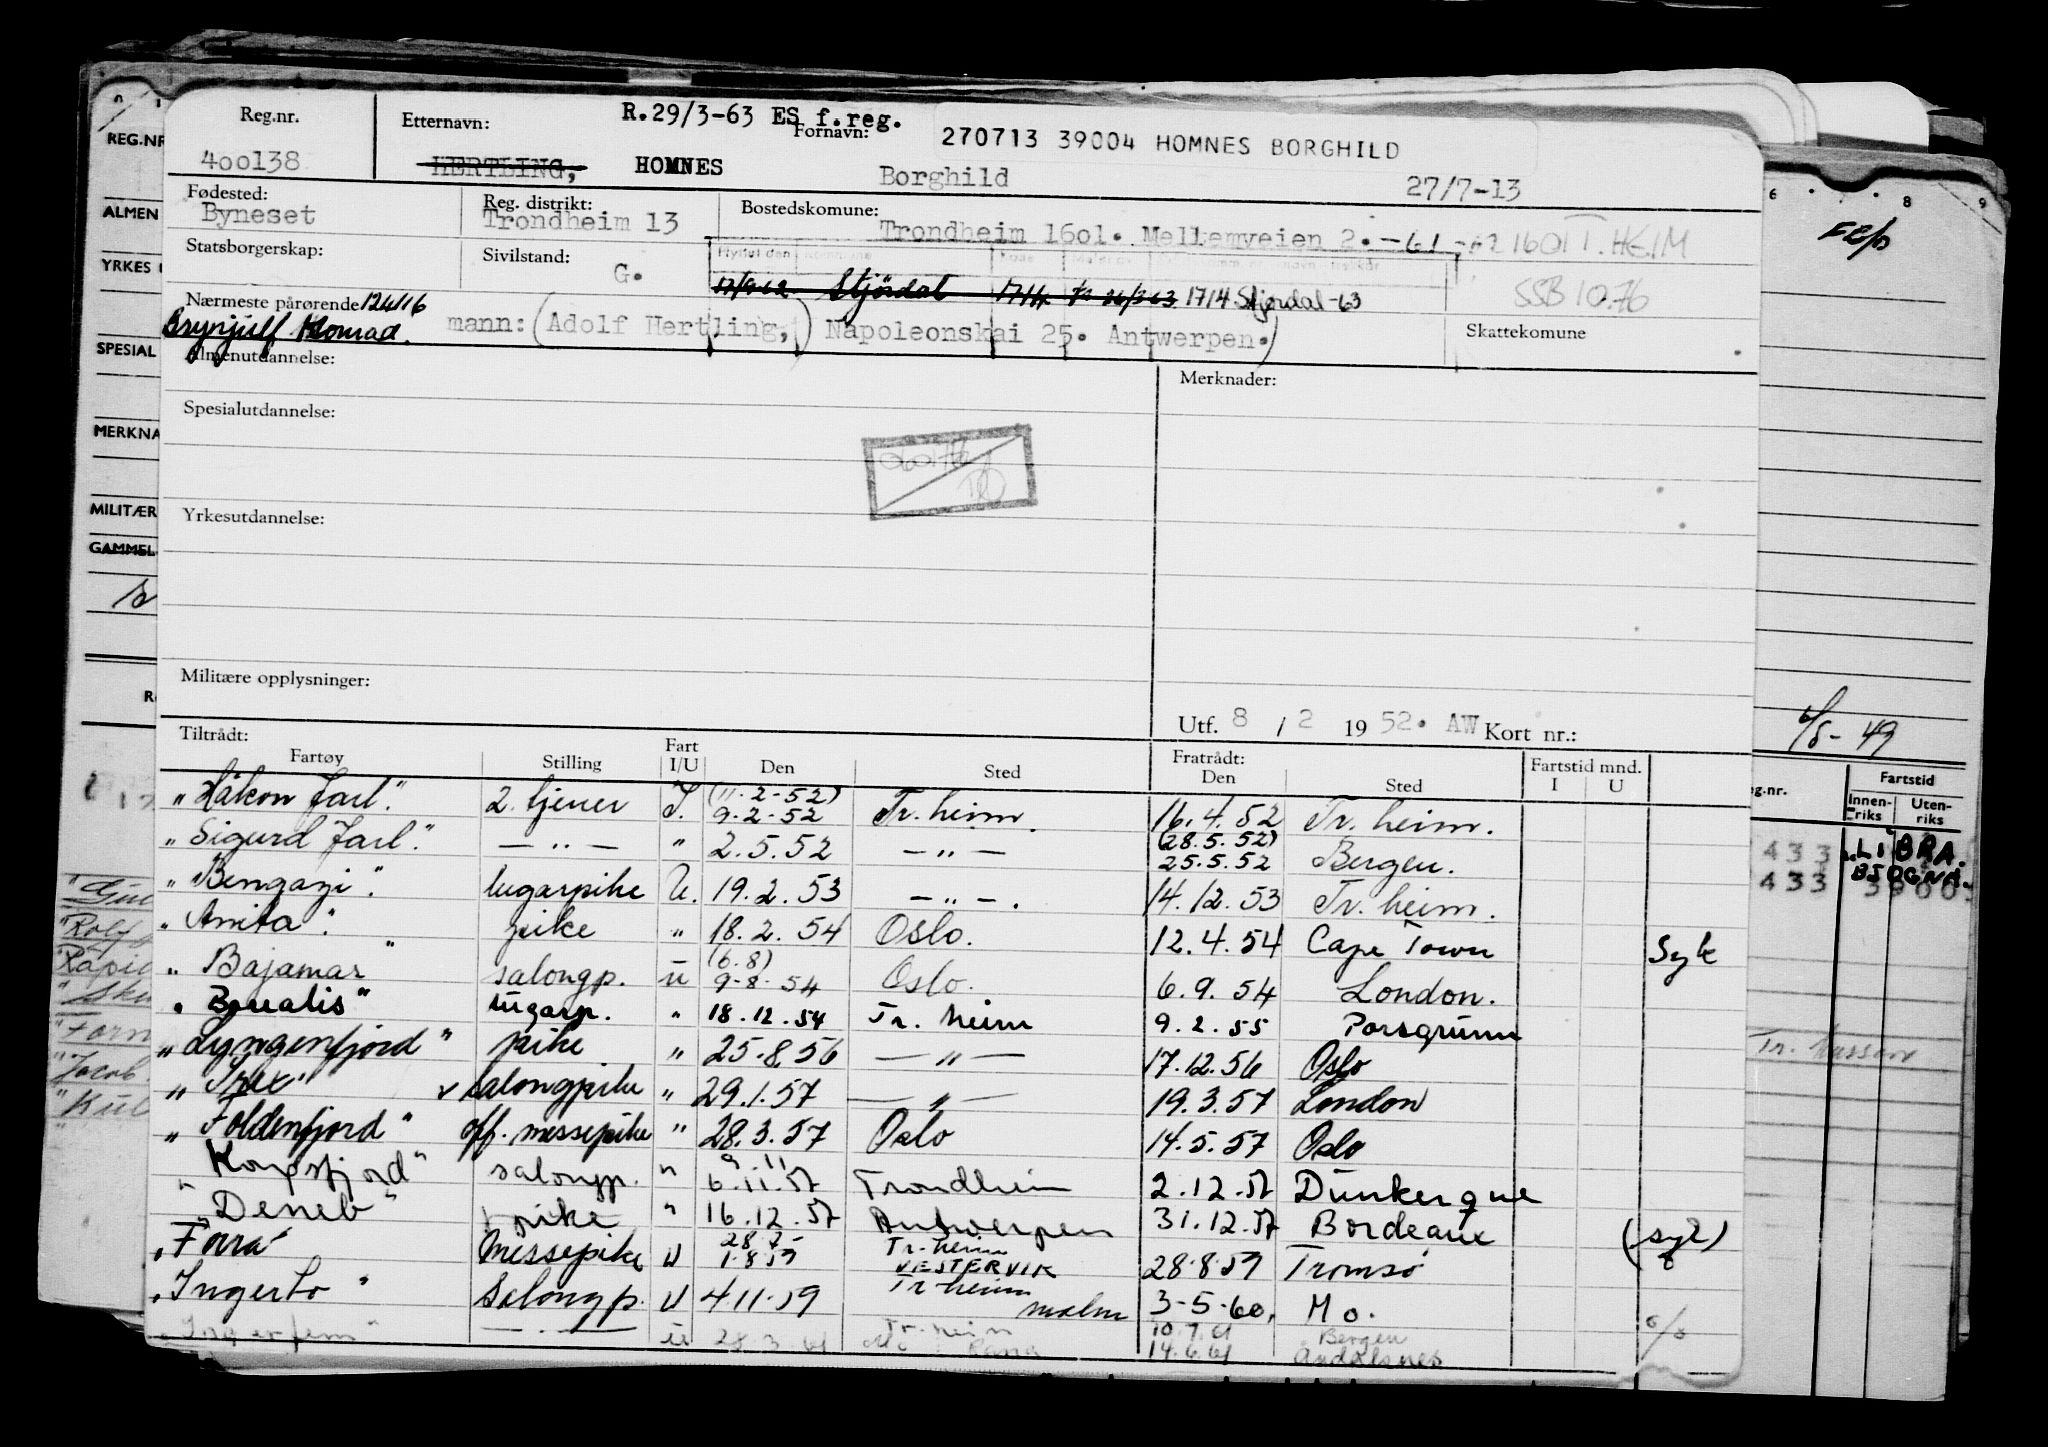 Reg.nr. Etternavn: R.29/3-63 ES f.reg. Fornavn: 270713 39004 HOMNES BORGHILD
400138 HERTLING, HOMNES Borghild 27/7-13
Fødested: Reg. distrikt: Bostedskomune:
Byneset Trondheim 13 Trondheim 1601. Mellemveien 2. -61 -62 1601 T.HEIM
Statsborgerskap: Sivilstand: G. Flyttet den
17/9-62 Stjørdal 1714 26/3 63 1714 Stjørdal -63 SSB 10.76
Nærmeste pårørende 12416
Brynjulf Konrad. mann: (Adolf Hertling,) Napoleonskai 25. Antwerpen.) Skattekomune
Almenutdannelse: Merknader:
Spesialutdannelse:
Yrkesutdannelse:
Militære opplysninger:
Utf. 8 / 2 1952. AW Kort nr.:
Tiltrådt: Fart Fratrådt: Fartstid mnd.
Fartøy Stilling I/U Den Sted Den Sted I U
"Håkon Jarl". 2. tjener I. (11.2-52) 9.2-52 Tr.heim. 16.4.52 Tr.heim.
"Sigurd Jarl". — " — " 2.5.52 — " — (28.5.52) 25.5.52 Bergen.
"Bengazi". lugarpike U. 19.2.53 — " —. 14.12.53 Tr.heim.
"Anita". pike " 18.2.54 Oslo. 12.4.54 Cape Town Syk
"Bajamar" salongp. u (6.8) 9-8-54 Oslo. 6.9.54 London.
"Borealis" lugarp. " 18.12.54 Tr.heim 9.2.55 Porsgrunn
"Lyngenfjord" pike " 25.8.56 — " — 17.12.56 Oslo
"Trix" salongpike " 29.1.57 — " — 19.3.57 London
"Foldenfjord" off. messepike " 28.3.57 Oslo 14.5.57 Oslo
"Korsfjord" salongp. " 9 11 6.11.57 Trondheim 2.12.57 Dunkerque
"Deneb" pike " 16.12.57 Antwerpen 31.12.57 Bordeaux (syk)
"Forra" Messepike U 28.7 1.8.59 Tr-heim VESTERVIK 28.8.59 Tromsø
"Ingerto" Salongp. U 4.11.59 Tr-heim malm 3-5-60. Mo. o/o
"Ingerfem" — . — U 28.3.61 Tr.heim Mo i Rana 10.7.61 14.6.61 Bergen Åndalsnes
REG.NR
ALMEN
YRKES
SPESIAL
MERKNA
MILITÆR
GAMMEL
"Roly
Rapid
"Forn
"Jacob
6 8 9
6/8-49
g.nr. Fartstid
Innenriks Utenriks
433 LIBRA.
433
Tr.